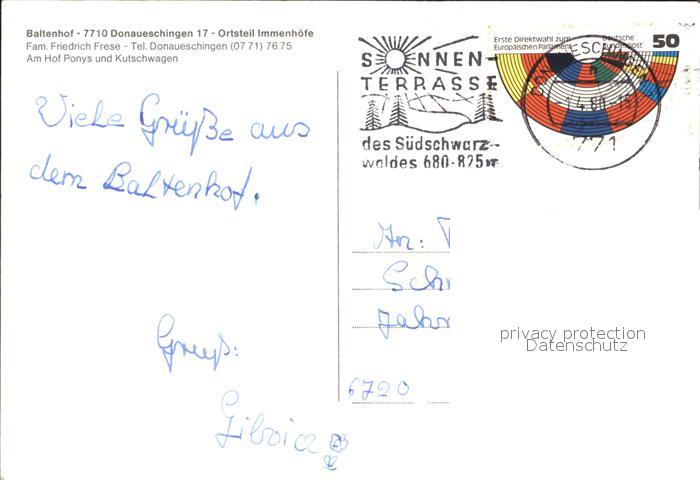 Baltenhof - 7710 Donaueschingen 17 - Ortsteil Immenhöfe
Fam. Friedrich Frese - Tel. Donaueschingen (07 71) 76 75
Am Hof Ponys und Kutschwagen
Viele Grüße aus
dem Baltenhof.
Gruß:
SONNEN-
TERRASSE
des Südschwarz-
waldes 680-825m
Erste Direktwahl zum
Europäischen Parlament
Deutsche
Bundespost
50
771
Schr
Jahn
6720
privacy protection
Datenschutz